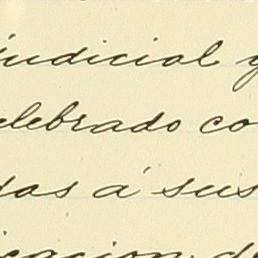 judicial y
elebrado co
das á sus
icacion de